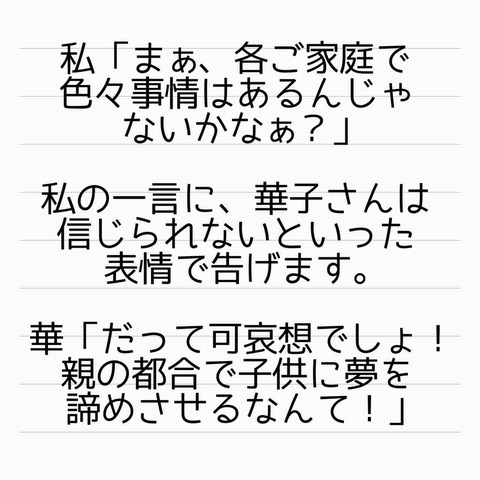 私「まぁ、各ご家庭で
色々事情はあるんじゃ
ないかなぁ？」
私の一言に、華子さんは
信じられないといった
表情で告げます。
華「だって可哀想でしょ！
親の都合で子供に夢を
諦めさせるなんて！」